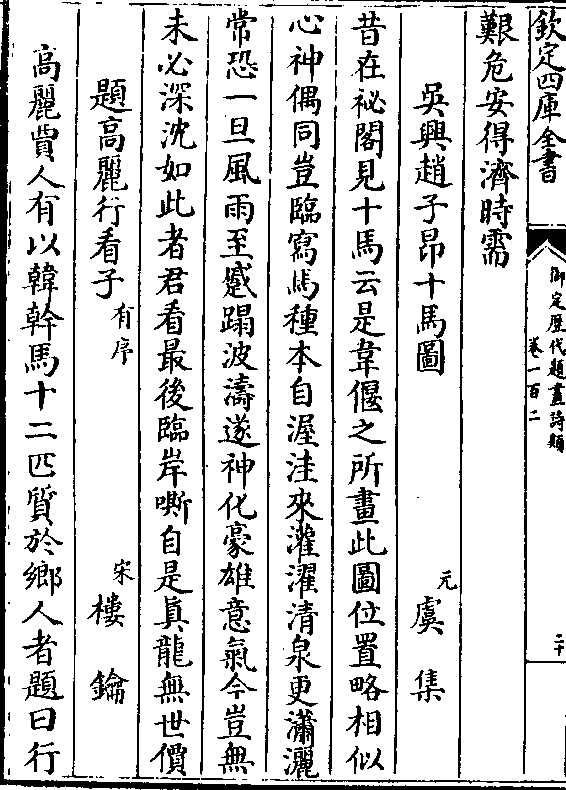 欽定四庫全書
御定歷代題畫詩類
卷一百二
二十
艱危安得濟時需
吳興趙子昂十馬圖　元　虞集
昔在祕閣見十馬云是韋偃之所畫此圖位置略相似
心神偶同豈臨寫馬種本自渥洼來灌濯清泉更瀟灑
常恐一旦風雨至蹙蹋波濤遂神化豪雄意氣今豈無
未必深沈如此者君看最後臨岸嘶自是真龍無世價
題高麗行看子有序　宋　樓鑰
高麗賈人有以韓幹馬十二匹質於鄉人者題曰行